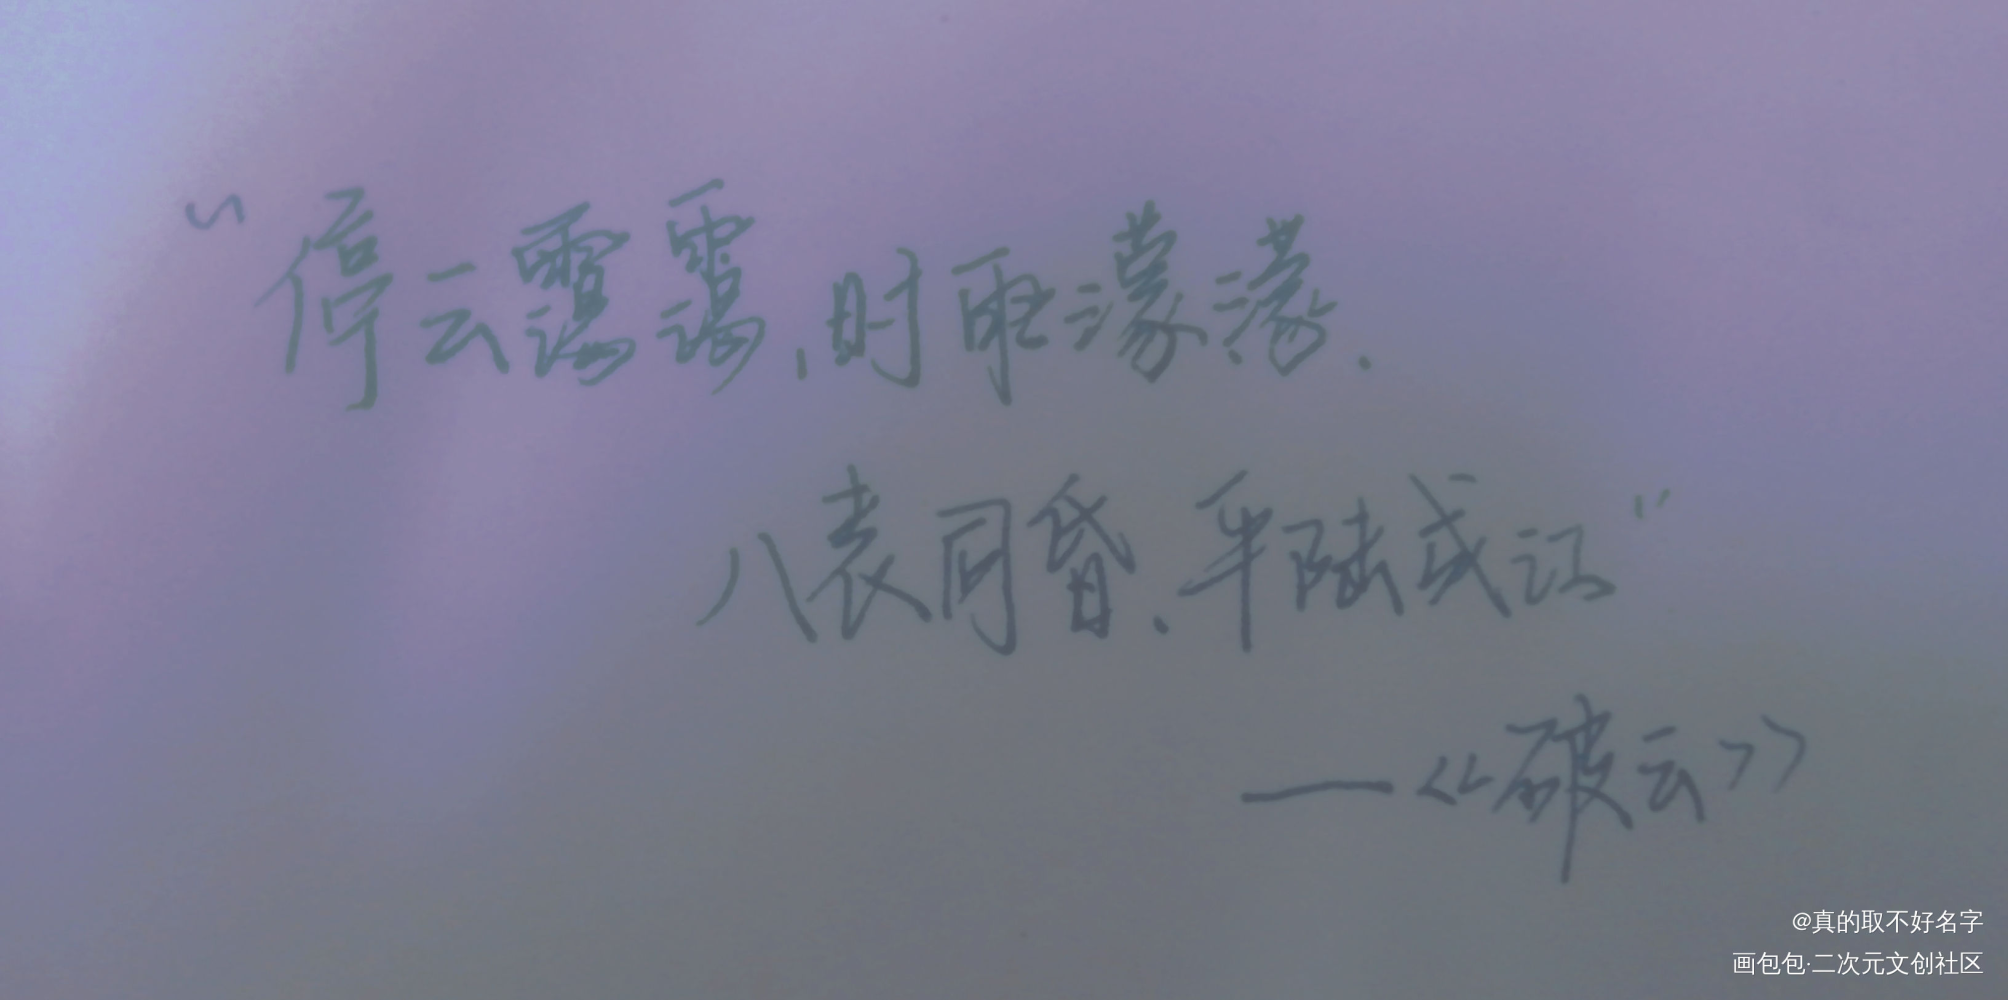 “停云霭霭,时雨濛濛.
八表同昏.平陆成江”
——《破云》
@真的取不好名字
画包包·二次元文创社区